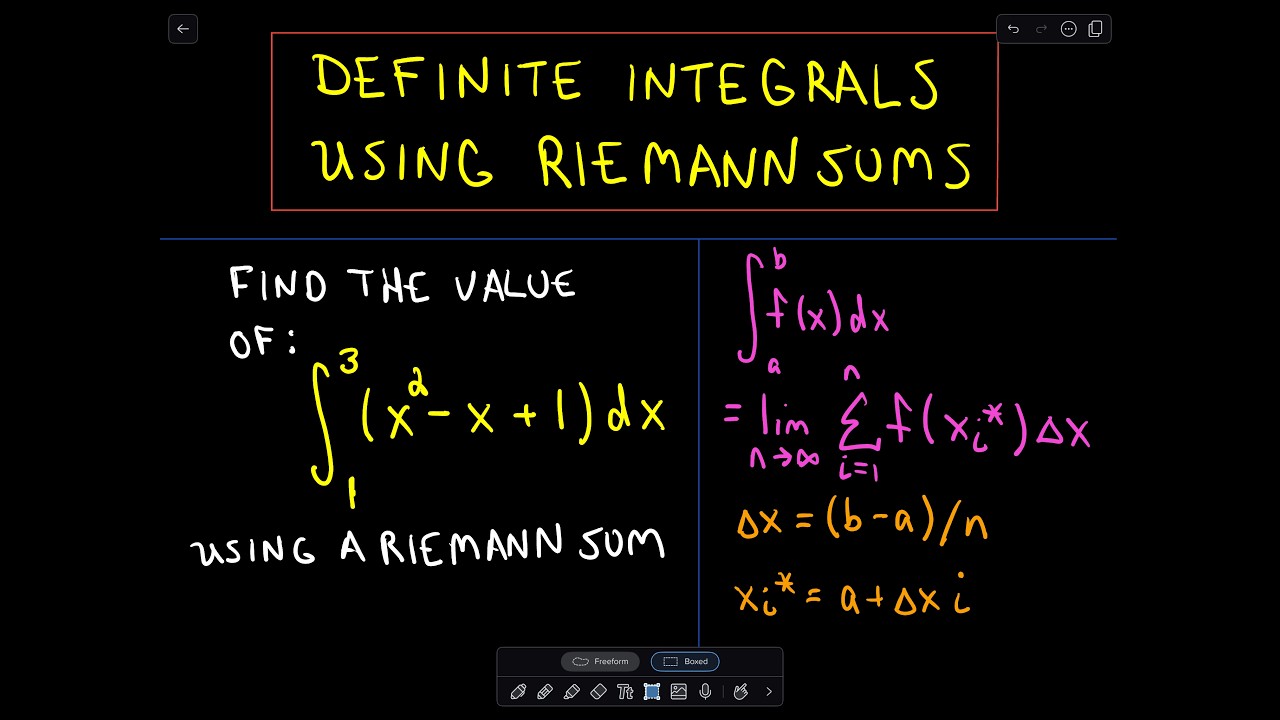 DEFINITE INTEGRALS
USING RIEMANN SUMS
FIND THE VALUE
OF:
∫₁³ (x² - x + 1) dx
USING A RIEMANN SUM
∫ₐᵇ f(x) dx
= lim n→∞ ∑ i=1 n f(xᵢ*) Δx
Δx = (b - a)/n
xᵢ* = a + Δx i
Freeform Boxed
Tt